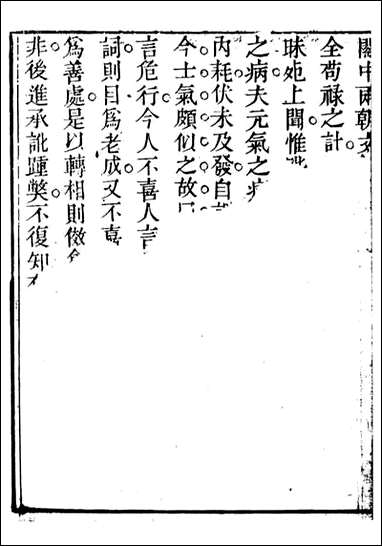 關中兩朝文
全苟祿之計
昧死上聞惟
之病夫元氣之疾
內耗伏未及發自
今士氣頗似之故
言危行今人不喜人言
詞則目爲老成又不喜
爲善處是以轉相則傚
非後進承訛踵獘不復知